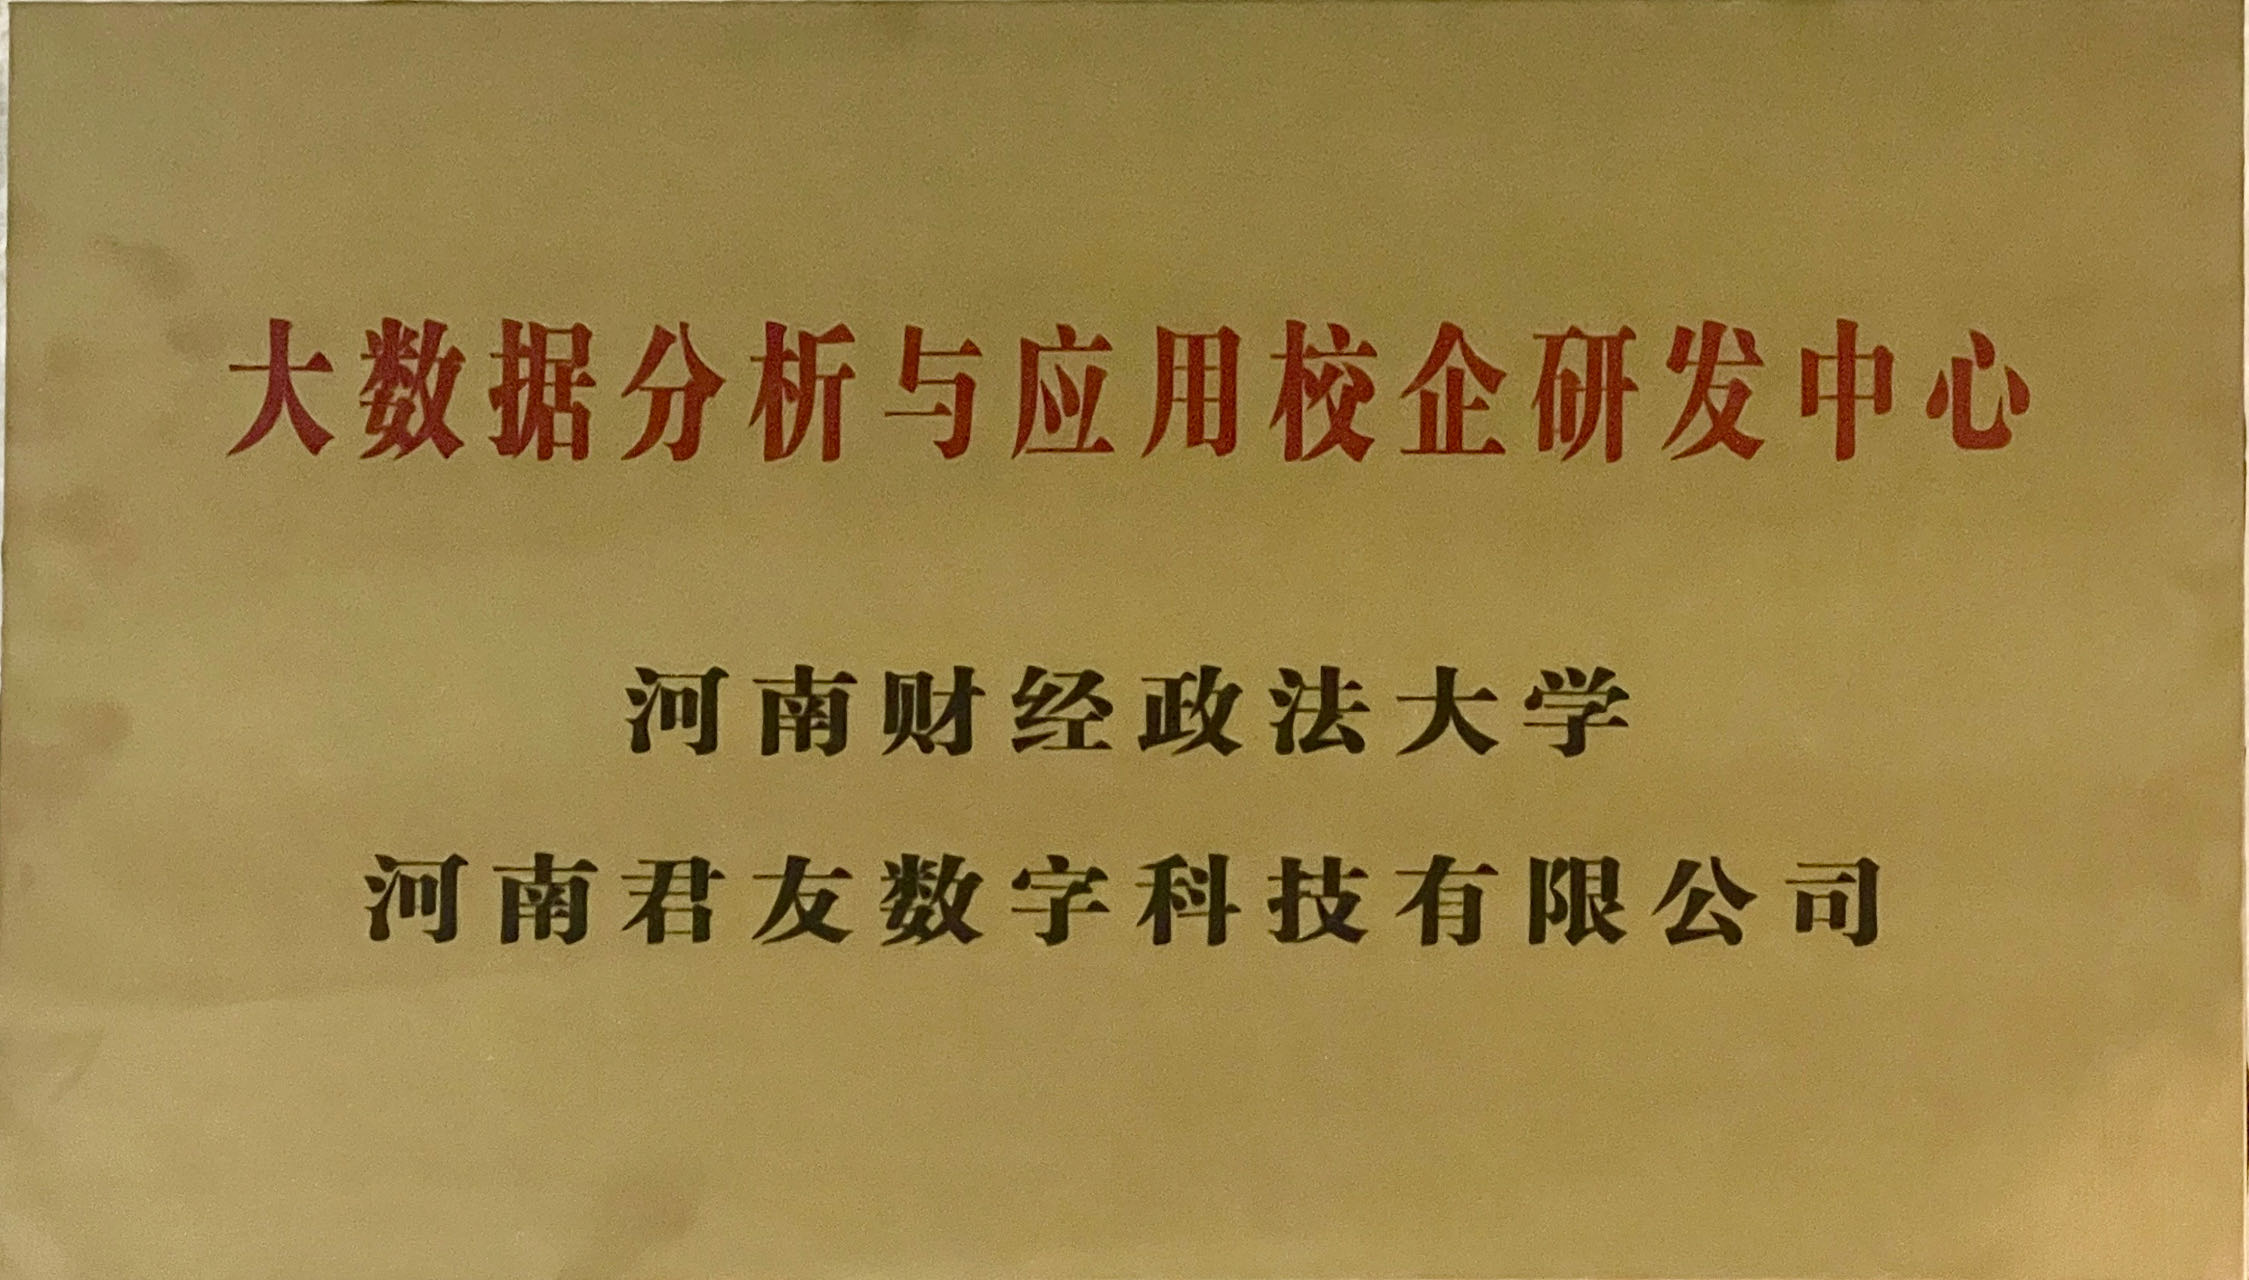 大数据分析与应用校企研发中心
河南财经政法大学
河南君友数字科技有限公司